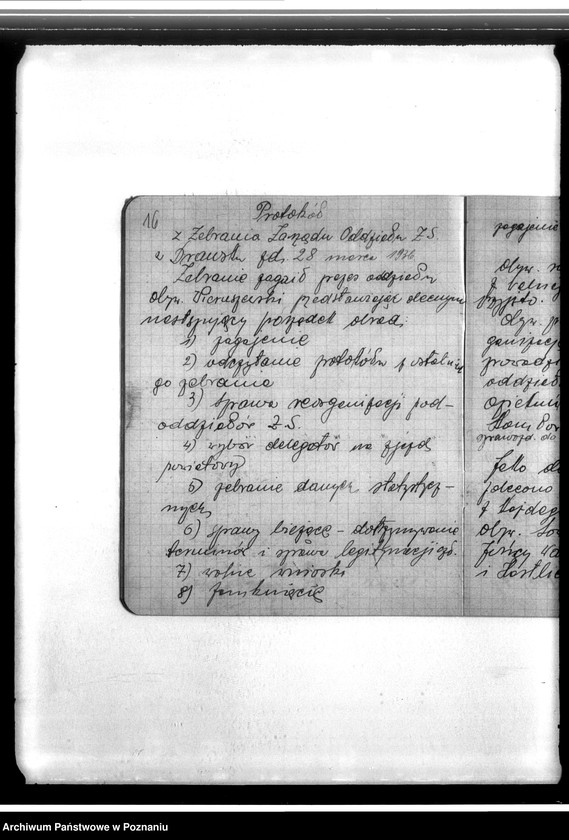 16
Protokół
z Zebrania Zarządu Oddziału Z.S.
w Drawsku fd. 28 marca 1936
Zebranie zagaił prezes oddziału
obyw. Pieruszewski przedstawiając obecnym
następujący porządek obrad:
1) zagajenie
2) odczytanie protokółu z ostatnie
go zebrania
3) sprawa reorganizacji pod-
oddziałów Z.S.
4) wybór delegatów na zjazd
powiatowy
5) zebranie danych statystycz-
nych
6) sprawy bieżące – dotrzymywanie
terminów i sprawa legitymacji
7) wolne wnioski
8) zamknięcie
zagajenie
obyw.
przyjęto.
Obyw.
ganizacji
prowadzi
oddział
opiekun
sprawozd. do
Jako
zlecono
obyw.
i
Archiwum Państwowe w Poznaniu